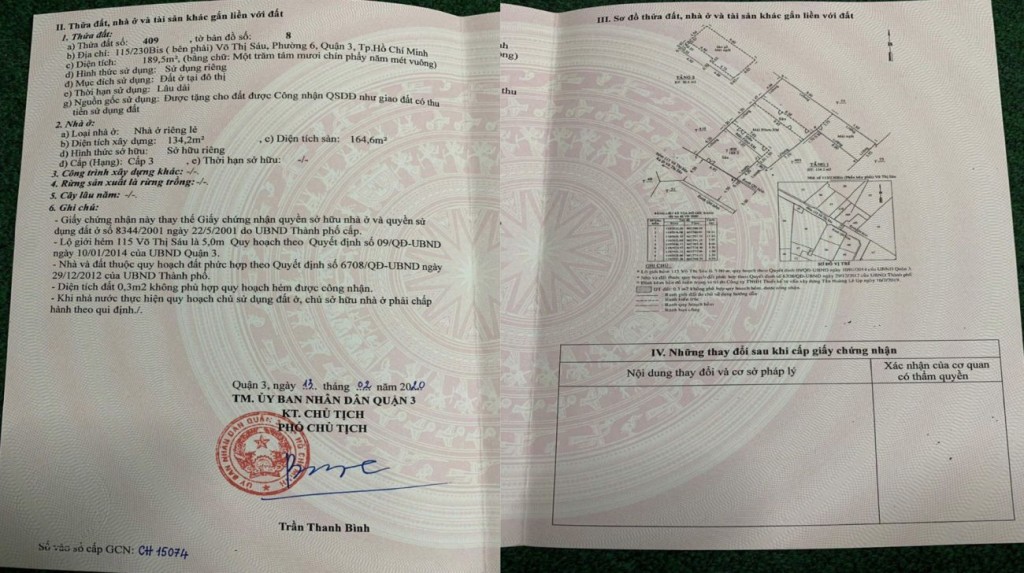 II. Thửa đất, nhà ở và tài sản khác gắn liền với đất
1. Thửa đất:
a) Thửa đất số: 409 , tờ bản đồ số: 8
b) Địa chỉ: 115/230Bis ( bên phải) Võ Thị Sáu, Phường 6, Quận 3, Tp.Hồ Chí Minh
c) Diện tích: 189,5m², (bằng chữ: Một trăm tám mươi chín phẩy năm mét vuông)
d) Hình thức sử dụng: Sử dụng riêng
đ) Mục đích sử dụng: Đất ở tại đô thị
e) Thời hạn sử dụng: Lâu dài
g) Nguồn gốc sử dụng: Được tặng cho đất được Công nhận QSDĐ như giao đất có thu
tiền sử dụng đất
2. Nhà ở:
a) Loại nhà ở: Nhà ở riêng lẻ
b) Diện tích xây dựng: 134,2m² , c) Diện tích sàn: 164,6m²
d) Hình thức sở hữu: Sở hữu riêng
đ) Cấp (Hạng): Cấp 3 , e) Thời hạn sở hữu: -/-
3. Công trình xây dựng khác: -/-.
4. Rừng sản xuất là rừng trồng: -/-.
5. Cây lâu năm: -/-.
6. Ghi chú:
- Giấy chứng nhận này thay thế Giấy chứng nhận quyền sở hữu nhà ở và quyền sử
dụng đất ở số 8344/2001 ngày 22/5/2001 do UBND Thành phố cấp.
- Lộ giới hẻm 115 Võ Thị Sáu là 5,0m Quy hoạch theo Quyết định số 09/QĐ-UBND
ngày 10/01/2014 của UBND Quận 3.
- Nhà và đất thuộc quy hoạch đất phức hợp theo Quyết định số 6708/QĐ-UBND ngày
29/12/2012 của UBND Thành phố.
- Diện tích đất 0,3m2 không phù hợp quy hoạch hẻm được công nhận.
- Khi nhà nước thực hiện quy hoạch chủ sử dụng đất ở, chủ sở hữu nhà ở phải chấp
hành theo qui định./.
Quận 3, ngày 13 tháng 02 năm 2020
TM. ỦY BAN NHÂN DÂN QUẬN 3
KT. CHỦ TỊCH
PHÓ CHỦ TỊCH
Trần Thanh Bình
Số vào sổ cấp GCN: CH 15074
III. Sơ đồ thửa đất, nhà ở và tài sản khác gắn liền với đất
TẦNG 2
TẦNG 1
SƠ ĐỒ VỊ TRÍ
GHI CHÚ
IV. Những thay đổi sau khi cấp giấy chứng nhận
Nội dung thay đổi và cơ sở pháp lý
Xác nhận của cơ quan
có thẩm quyền